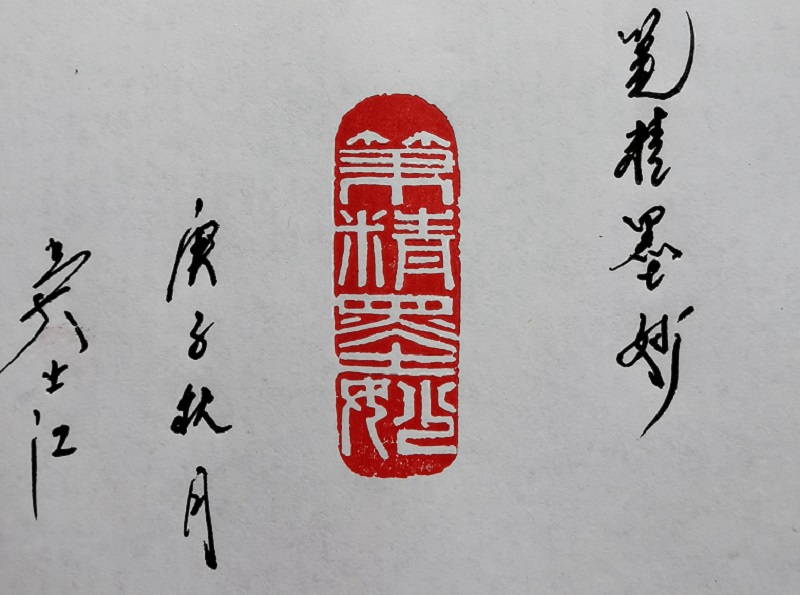 笔精墨妙
筆精墨妙
庚子秋月
士江